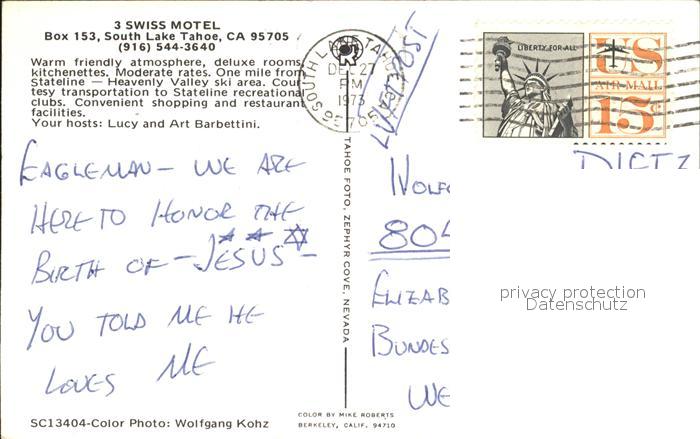 3 SWISS MOTEL
Box 153, South Lake Tahoe, CA 95705
(916) 544-3640
Warm friendly atmosphere, deluxe rooms
kitchenettes. Moderate rates. One mile from
Stateline — Heavenly Valley ski area. Cour-
tesy transportation to Stateline recreational
clubs. Convenient shopping and restaurant
facilities.
Your hosts: Lucy and Art Barbettini.
EAGLEMAN — WE ARE
HERE TO HONOR THE
BIRTH OF — JESUS —
YOU TOLD ME HE
LOVES ME
SC13404-Color Photo: Wolfgang Kohz
TAHOE FOTO, ZEPHYR COVE, NEVADA
COLOR BY MIKE ROBERTS
BERKELEY, CALIF. 94710
SOUTH LAKE TAHOE
DEC 27
PM
1973
95705
LUFTPOST
LIBERTY FOR ALL
US
AIR MAIL
15c
DIETZ
WOLFG
804
ELIZAB
BUNDES
WE
privacy protection
Datenschutz